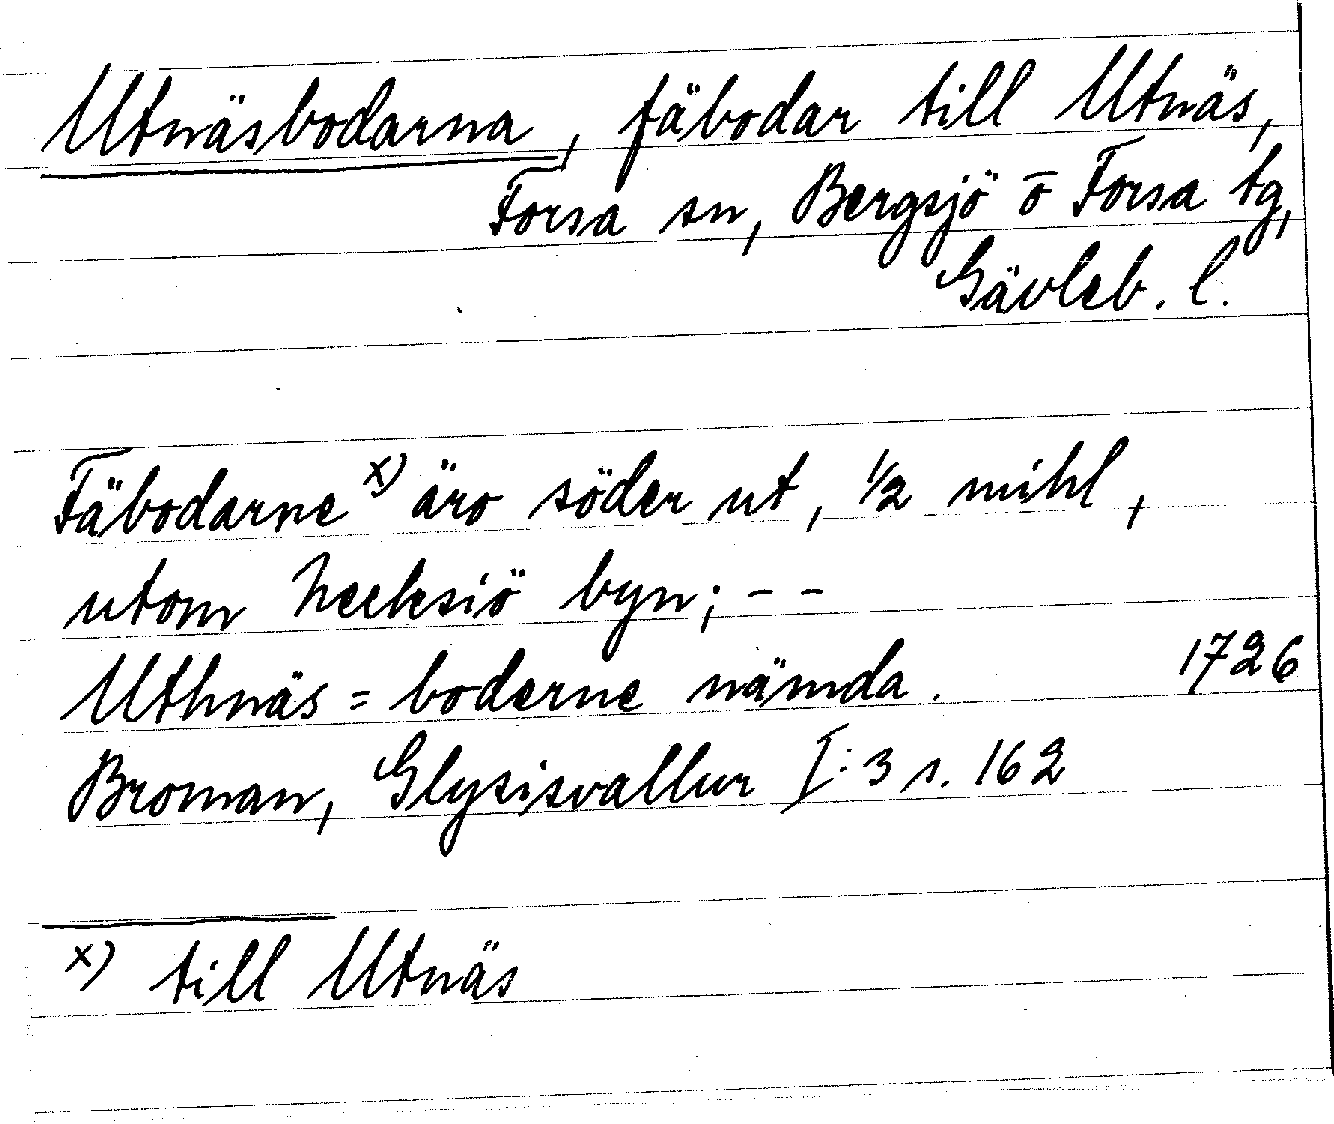 Utnäsbodarna, fäbodar till Utnäs,
Forsa sn, Bergsjö o Forsa tg,
Gävleb. l.
Fäbodarne x) äro söder ut, 1/2 mihl,
utom hecksiö byn; - -
Uthnäs = boderne nämda. 1726
Broman, Glysisvallur I:3 s. 162
x) till Utnäs